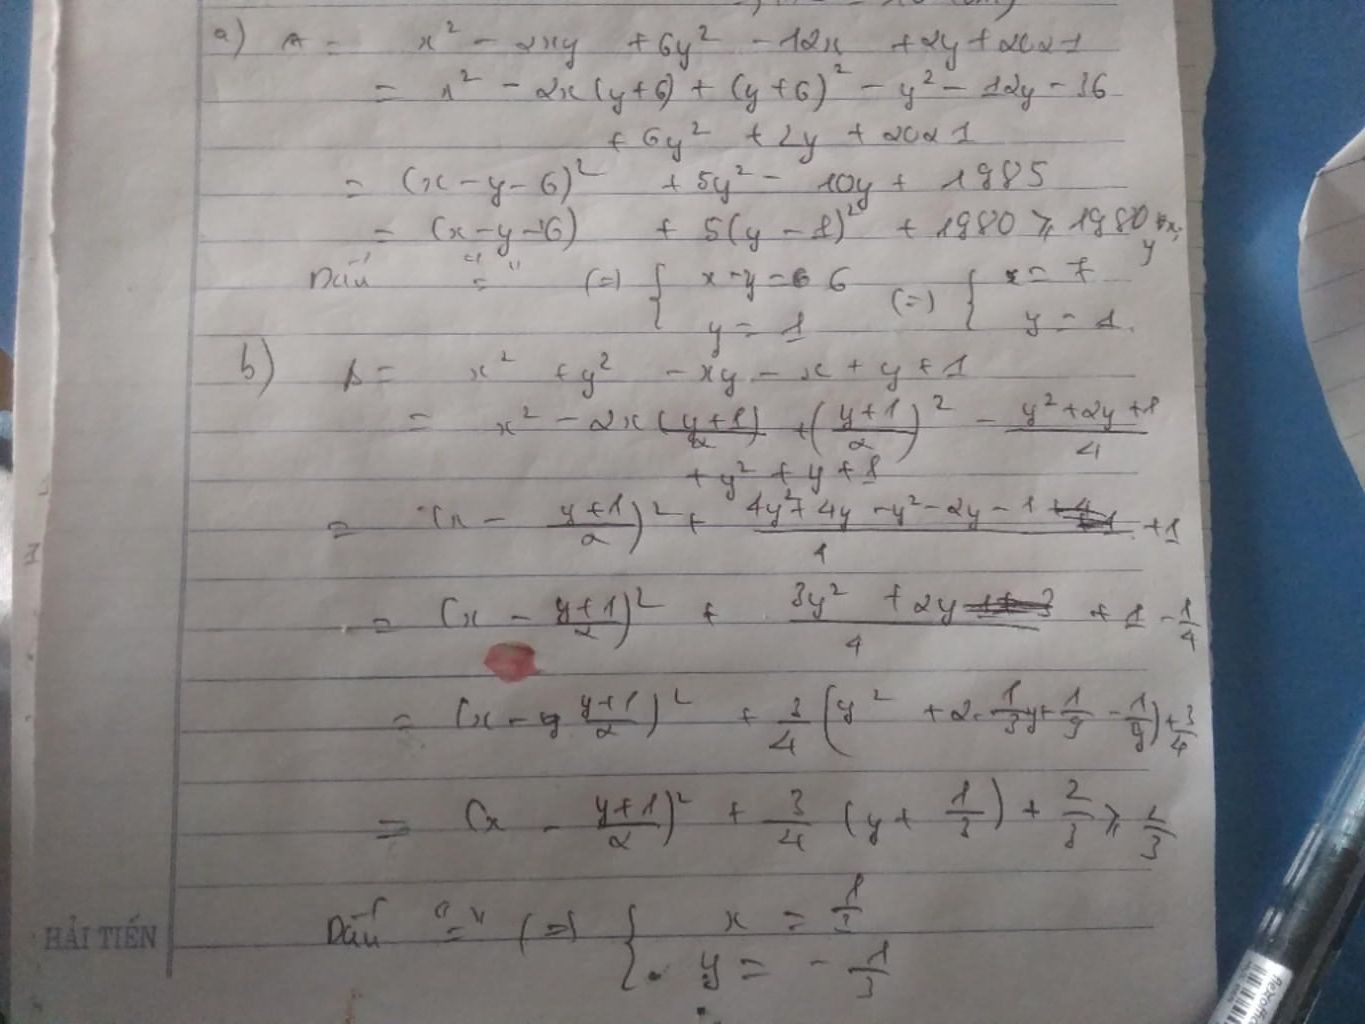 a) A = x² - 2xy + 6y² - 12x + 2y + 2021
= x² - 2x(y+6) + (y+6)² - y² - 12y - 36
+ 6y² + 2y + 2021
= (x - y - 6)² + 5y² - 10y + 1985
= (x - y - 6) + 5(y - 1)² + 1980 ⩾ 1980 ∀x; y
Dấu "=" (=) { x - y = 6 (=) { x = 7
y = 1 y = 1.
b) A = x² + y² - xy - x + y + 1
= x² - 2x (y+1)/2 + ((y+1)/2)² - (y²+2y+1)/4
+ y² + y + 1
= (x - (y+1)/2)² + (4y² + 4y - y² - 2y - 1)/4 + 1
= (x - (y+1)/2)² + (3y² + 2y)/4 + 1 - 1/4
= (x - (y+1)/2)² + 3/4 (y² + 2.1/3y + 1/9 - 1/9) + 3/4
= (x - (y+1)/2)² + 3/4 (y + 1/3) + 2/3 ⩾ 2/3
Dấu "=" (=) { x = 1/3
y = - 1/3
HẢI TIẾN